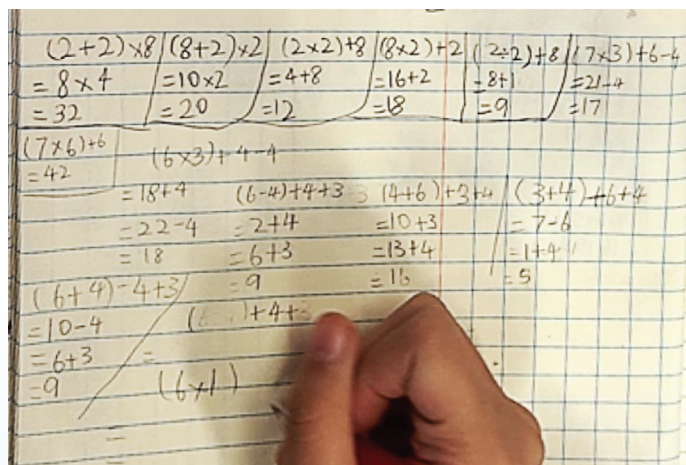 (2+2)×8
=8×4
=32
(8+2)×2
=10×2
=20
(2×2)+8
=4+8
=12
(8×2)+2
=16+2
=18
(2÷2)+8
=8+1
=9
(7×3)+6-4
=21-4
=17
(7×6)+6
=42
(6×3)+4-4
=18+4
=22-4
=18
(6-4)+4+3
=2+4
=6+3
=9
(4+6)+3+4
=10+3
=13+4
=16
(3+4)+6+4
=7-6
=1+4
=5
(6+4)-4+3
=10-4
=6+3
=9
)+4+3
=
(6×1)
=